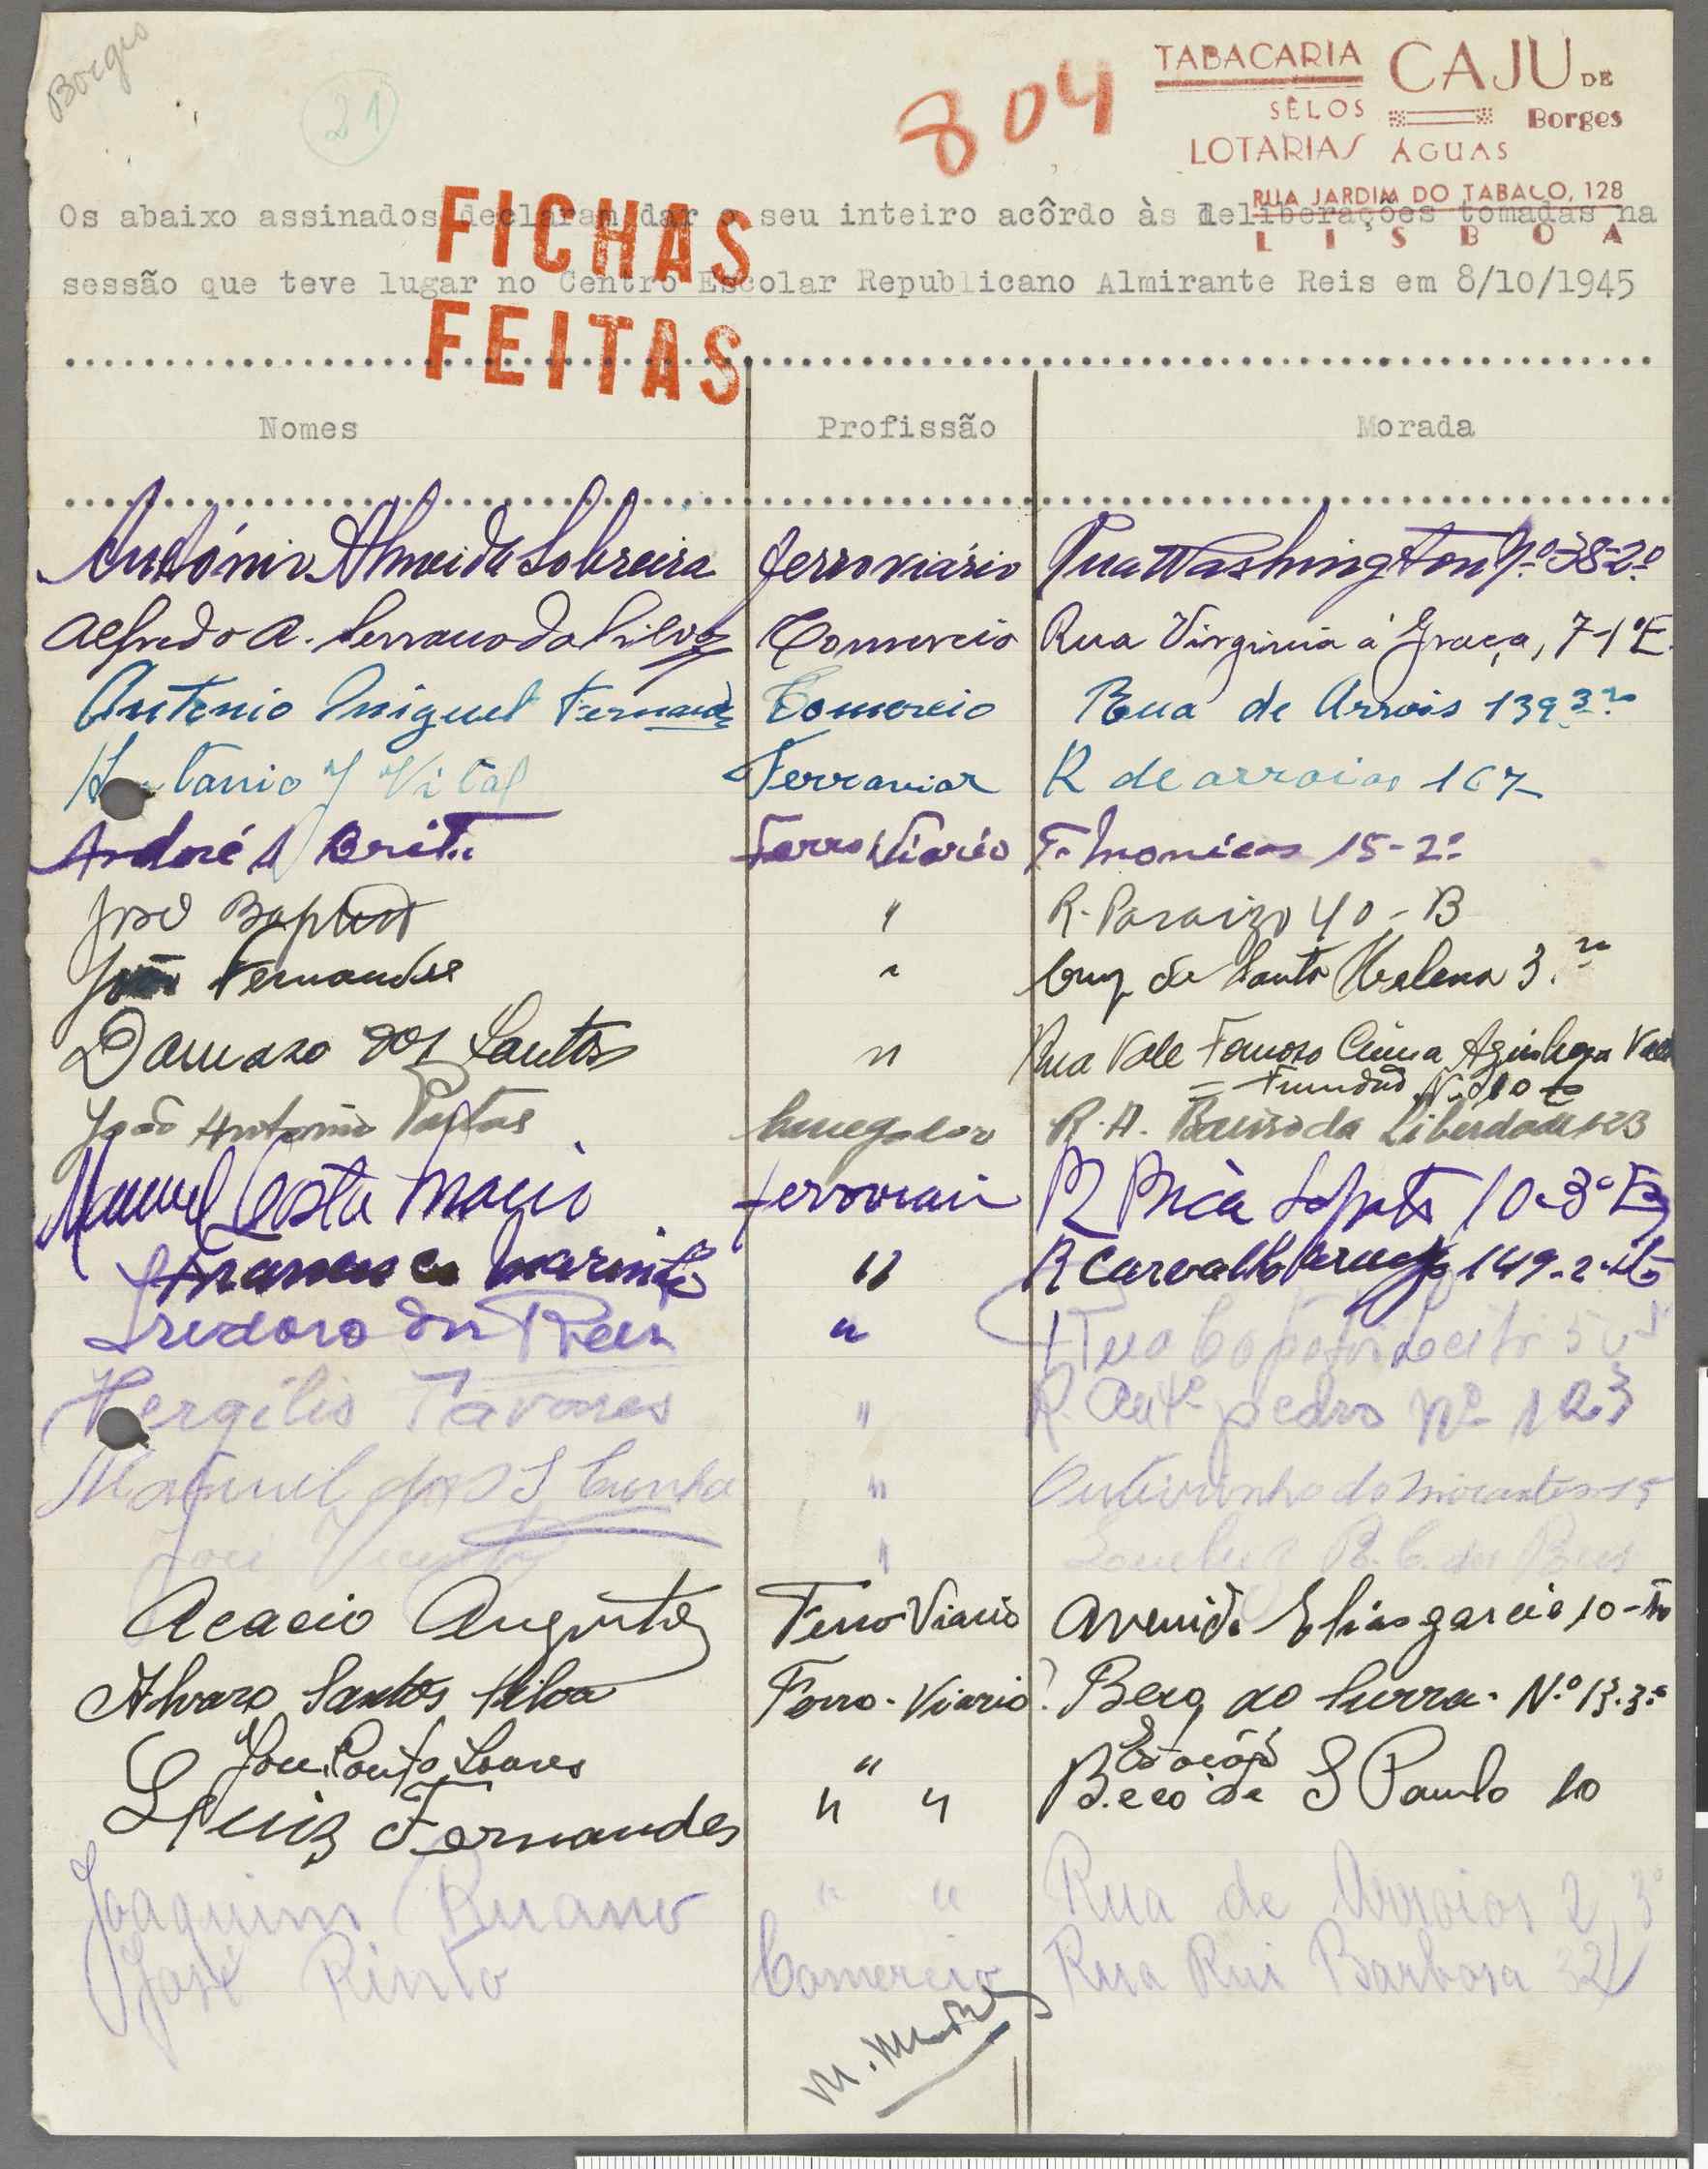 Borges
21
804
TABACARIA CAJU DE
SÊLOS Borges
LOTARIAS ÁGUAS
RUA JARDIM DO TABACO, 128
LISBOA
Os abaixo assinados declaram dar o seu inteiro acôrdo às deliberações tomadas na
sessão que teve lugar no Centro Escolar Republicano Almirante Reis em 8/10/1945
FICHAS
FEITAS
Nomes Profissão Morada
António Almeida Sobreira ferroviário Rua Washington Nº 38-2º
Alfredo A. Serrano da Silva Comercio Rua Virginia á Graça, 7-1º E.
Antonio Miguel Fernandes Comercio Rua de Arroios 139 3º
Antonio J Vital Ferroviar R de arroios 167
André A Brito Ferro Viario T. Monicas 15-2º
José Baptista " R. Paraizo 40-B
João Fernandes " Cruz de Santa Helena 3.
Damazo dos Santos " Rua Vale Formoso Cima Azinhaga Vale
Fundão Nº 10
João Antonio Pastas R. A. Bairro da Liberdade 123
Manuel Costa ferroviari R 10-3º E
Francisco Marinho " R Carvalho Araujo 149-2º
Izidoro dos Reis " Rua
Vergilio Tavares " R. Antº pedro nº 123
Manuel dos S Cunha " Outeirinho do Mirante 15
José " R. C. dos
Acacio Augusto Ferro Viario Avenida Elias garcia 10
Alvaro Santos Silva Ferro-Viario Beco do Surra. N.º 13.3º
José Couto Soares " Estação
Luiz Fernandes " " Beco de S Paulo 10
Joaquim Ruano " " Rua de Arroios 2, 3º
José Pinto Comercio Rua Rui Barbosa 32